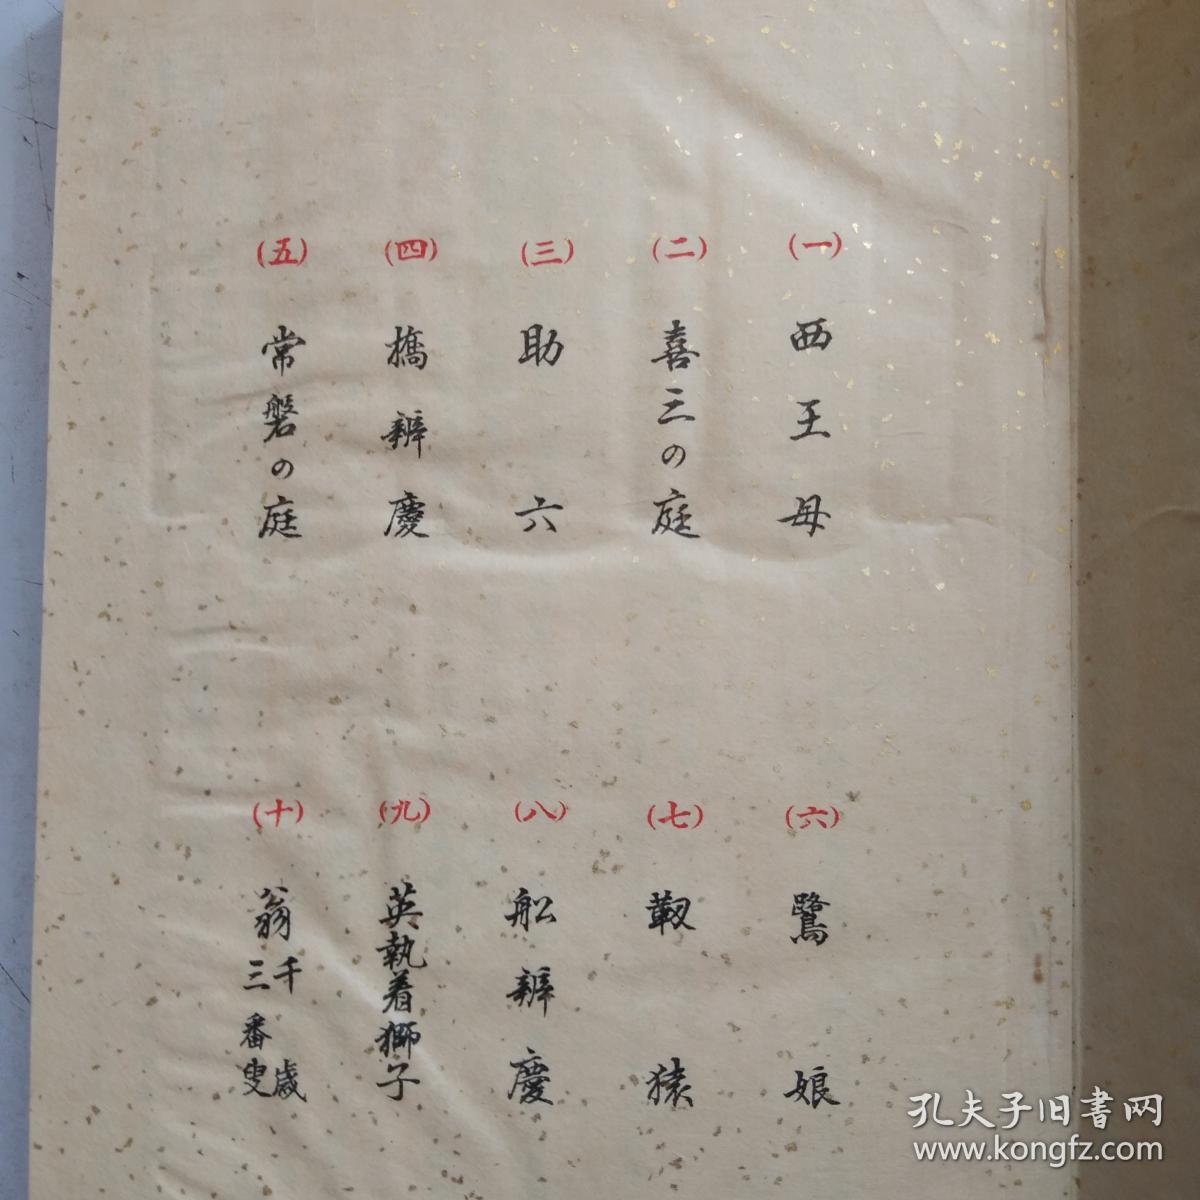 (一) 西王母
(二) 喜三の庭
(三) 助六
(四) 橋辨慶
(五) 常磐の庭
(六) 鷺娘
(七) 靱猿
(八) 船辨慶
(九) 英執着獅子
(十) 翁千歳三番叟
孔夫子旧书网
www.kongfz.com